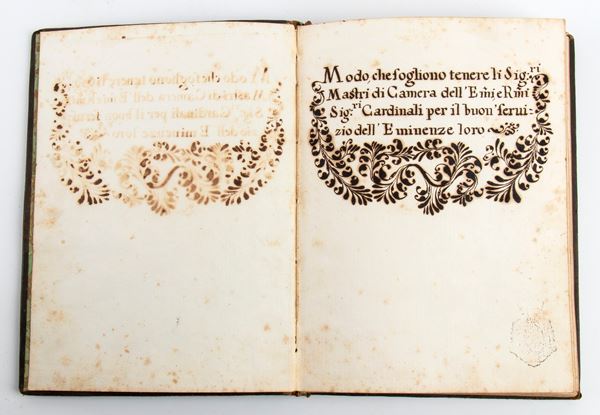 Modo, che sogliono tenere li Sig:ri
Mastri di Camera dell'Emi e Rmi
Sig:ri Cardinali per il buon serui-
zio dell'Eminenze loro